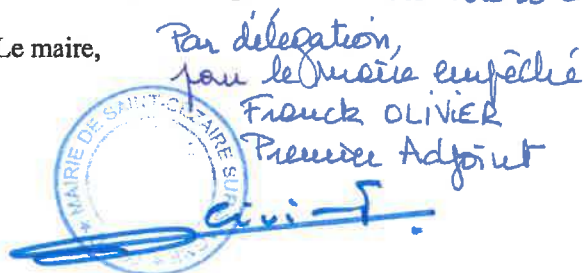 Le maire,
Par délégation,
pour le maire empêché
Franck OLIVIER
Premier Adjoint
MAIRIE DE SAINT-CEZAIRE SUR